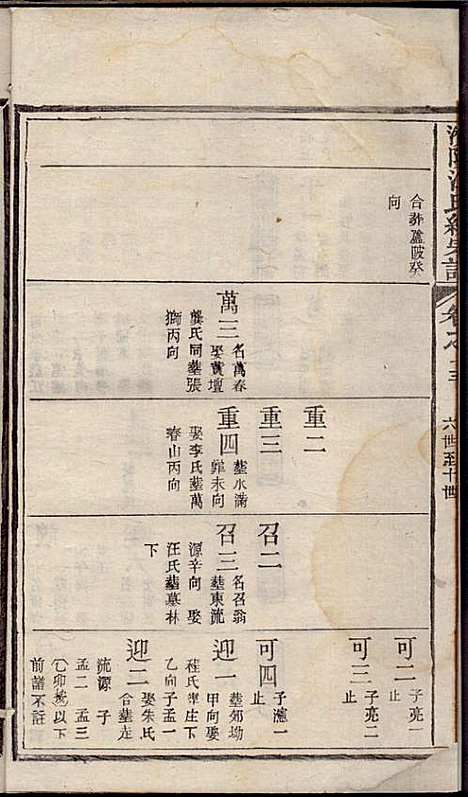 六世至十世
合葬蘆陂癸
向
萬三
名萬春
娶黃壇
龔氏同葬張
獅丙向
重二
重三
重四
葬水滿
羋未向
娶李氏葬萬
春山丙向
召二
召三
名召翁
葬東流
源辛向 娶
汪氏葬墓林
下
可二
子亮一
止
可三
子亮二
止
可四
子瀘一
止
迎一
葬郊坳
甲向娶
程氏葬庄下
乙向子孟一
迎二
娶朱氏
合葬左
流源 子
孟二 孟三
以下
前譜不註